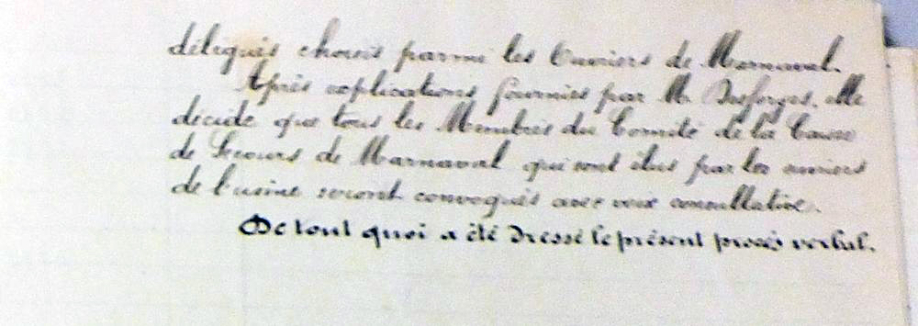 délégués choisis parmi les Ouvriers de Marnaval.
Après explications fournies par M. Desforges, elle
décide que tous les Membres du Comité de la Caisse
de Secours de Marnaval qui sont élus par les ouvriers
de l'usine seront convoqués avec voix consultative.
De tout quoi a été dressé le présent procès verbal.